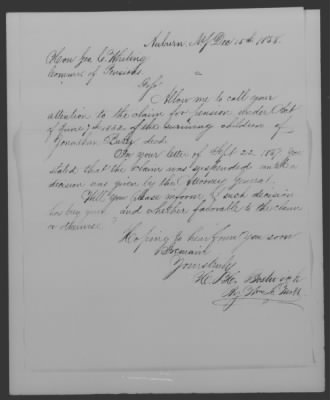 Auburn, NY Dec 15th 1858.
Hon Geo C. Whiting
Commr. of Pensions
Allow me to call your
attention to the claim for pension under Act
of June 7th 1832 of the surviving children of
Jonathan decd.
In your letter of Sept 22. 1857 you
stated that the claim was suspended until a
decision was given by the Attorney General.
Will you please inform if such decision
has been given and whether favorable to the claim
or otherwise.
Hoping to hear from you soon
I remain
Yours truly
H.